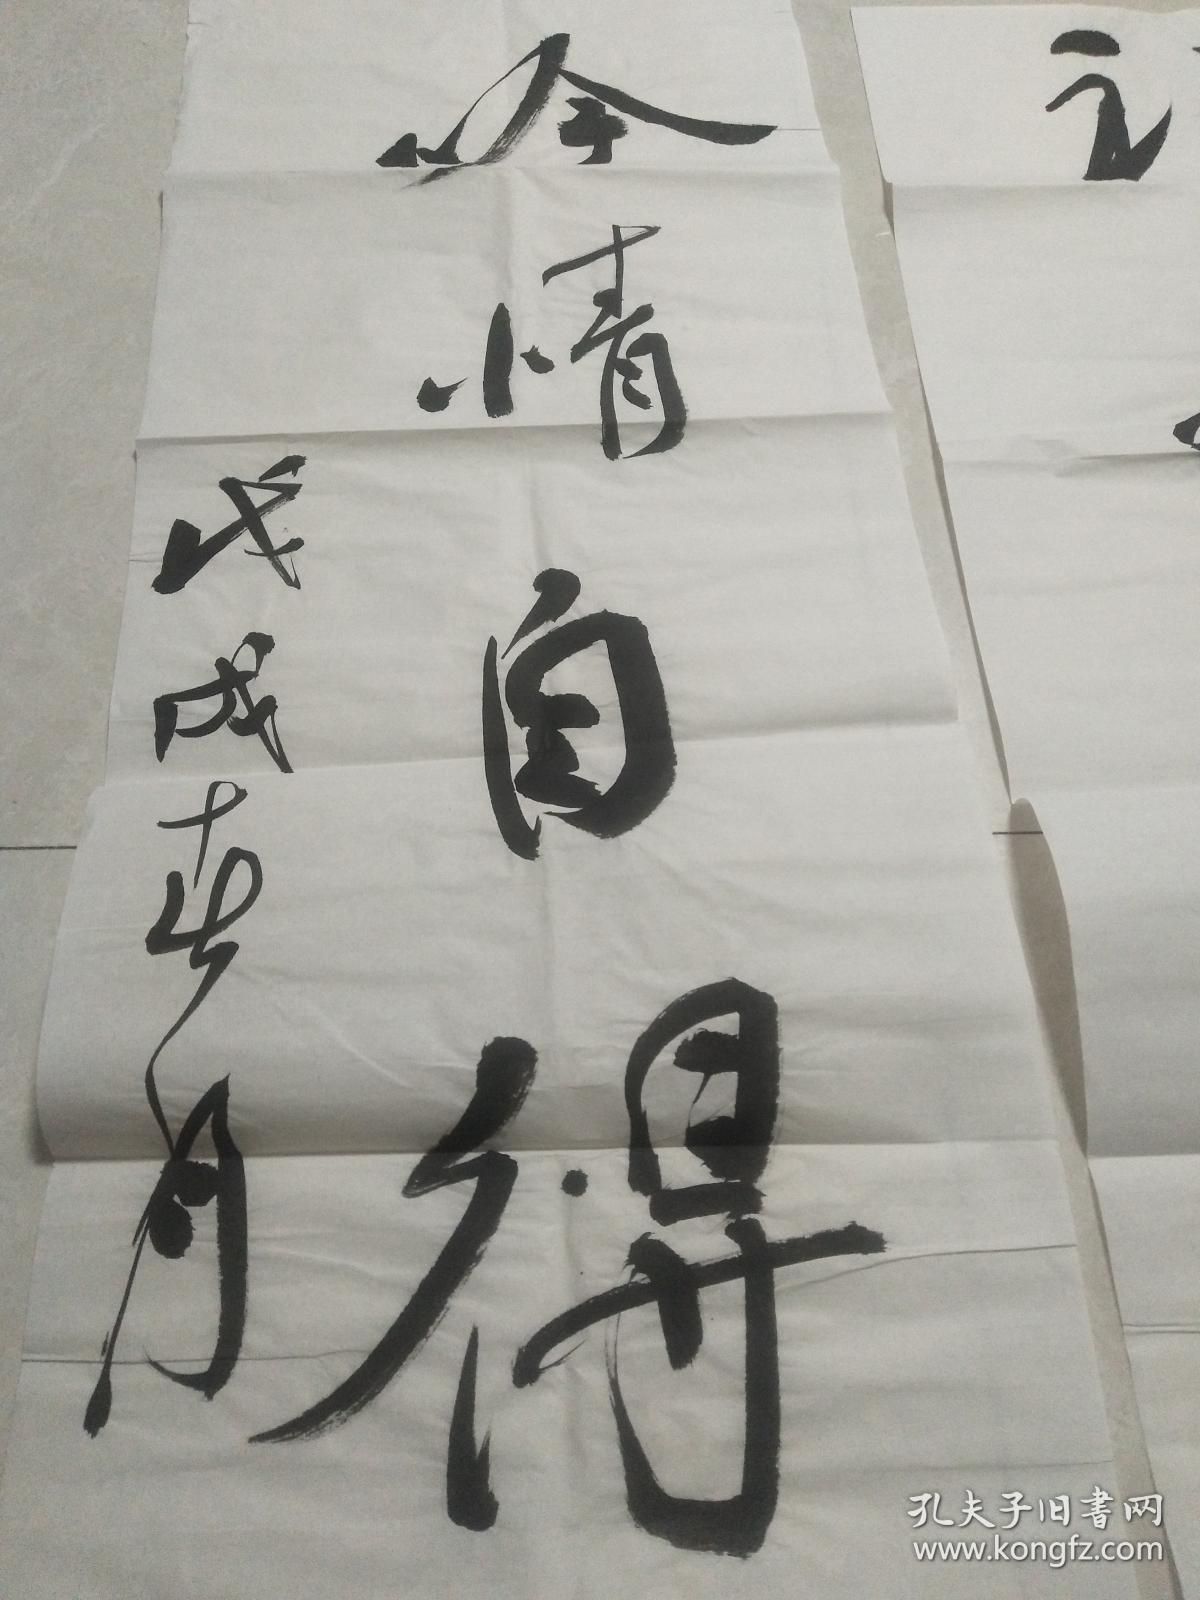 吟情自得
戊戌春月
孔夫子旧书网
www.kongfz.com